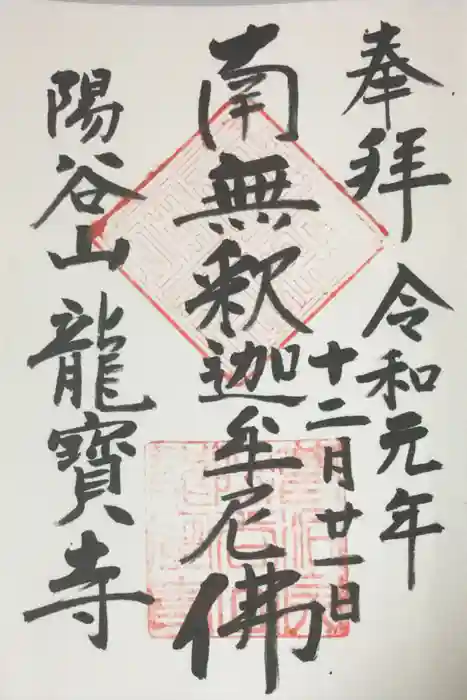 奉拝
令和元年
十二月廿一日
南無釈迦牟尼佛
陽谷山龍寶寺